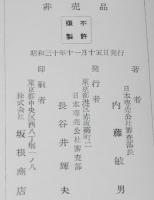 非売品
不許
複製
昭和三十年十一月十五日発行
著者
日本専売公社審査部長
内藤敏男
発行者
東京都港区赤坂葵町二
日本専売公社審査部
長谷井輝夫
印刷者
東京都中央区西八丁堀一ノ八
株式会社 坂根商店